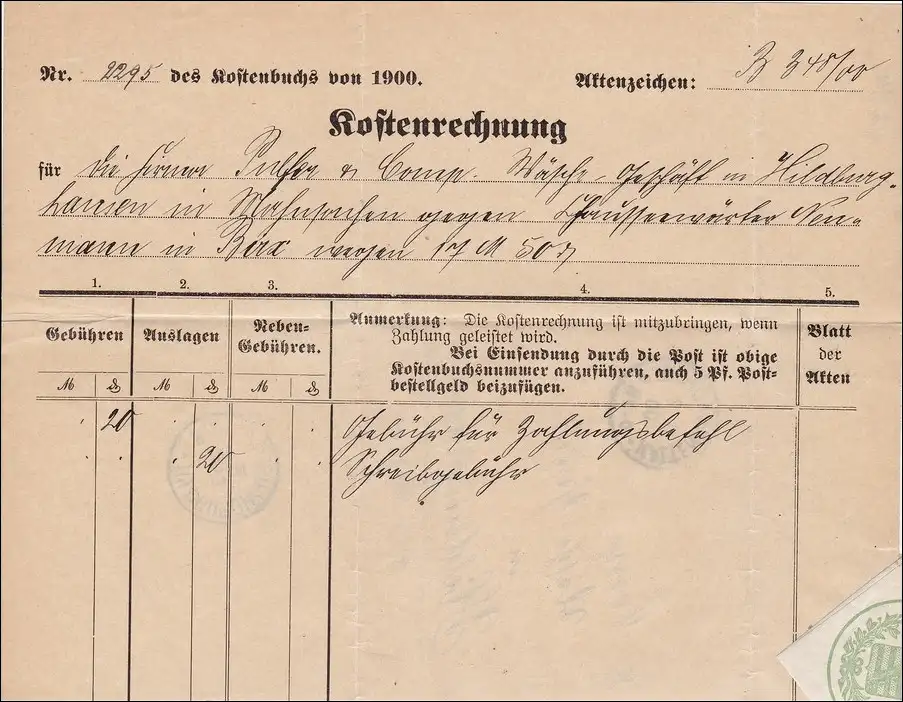 Nr. 2295 des Kostenbuchs von 1900.
Aktenzeichen: B 340/00
Kostenrechnung
für die Firma & Comp. Wäsche-Geschäft in Hildburg-
hausen in Mahnsachen gegen Chausseewärter Neu-
mann in Birx wegen 17 M 50 ₰
1. 2. 3. 4. 5.
Gebühren
Auslagen
Neben-
Gebühren.
Anmerkung: Die Kostenrechnung ist mitzubringen, wenn
Zahlung geleistet wird.
Bei Einsendung durch die Post ist obige
Kostenbuchsnummer anzuführen, auch 5 Pf. Post-
bestellgeld beizufügen.
Blatt
der
Akten
M ₰ M ₰ M ₰
20 Gebühr für Zahlungsbefehl
20 Schreibgebühr